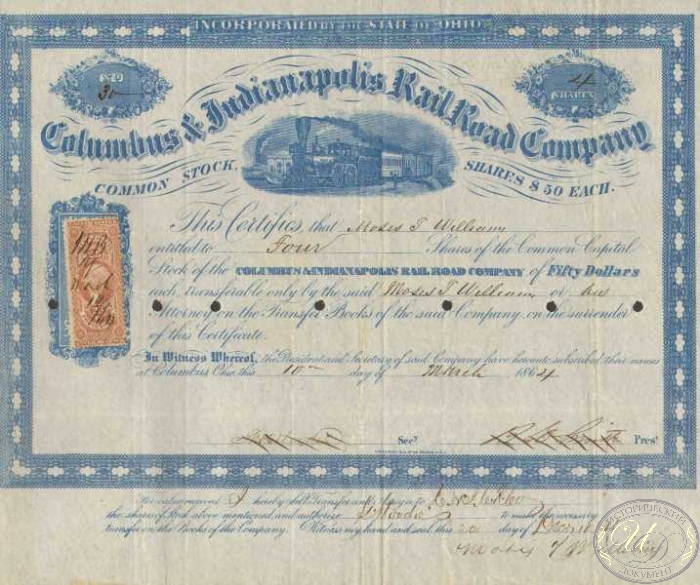 INCORPORATED BY THE STATE OF OHIO
No 30
4 SHARES
Columbus & Indianapolis Rail Road Company
COMMON STOCK. SHARES $50 EACH.
This Certifies, that Moses T William
entitled to Four Shares of the Common Capital
Stock of the COLUMBUS & INDIANAPOLIS RAIL ROAD COMPANY of Fifty Dollars
each, transferable only by the said Moses T William or his
Attorney on the Transfer Books of the said Company, on the surrender
of this Certificate.
In Witness Whereof, the President and Secretary of said Company have hereunto subscribed their names
at Columbus Ohio this 10th day of March 1864
Secy. Prest.
For value received I hereby sell, Transfer and Assign to
the shares of Stock above mentioned and authorize to make the necessary
transfer on the Books of the Company. Witness my hand and seal this day of
Moses T William
ИСТОРИЧЕСКИЙ
И
ДОКУМЕНТ